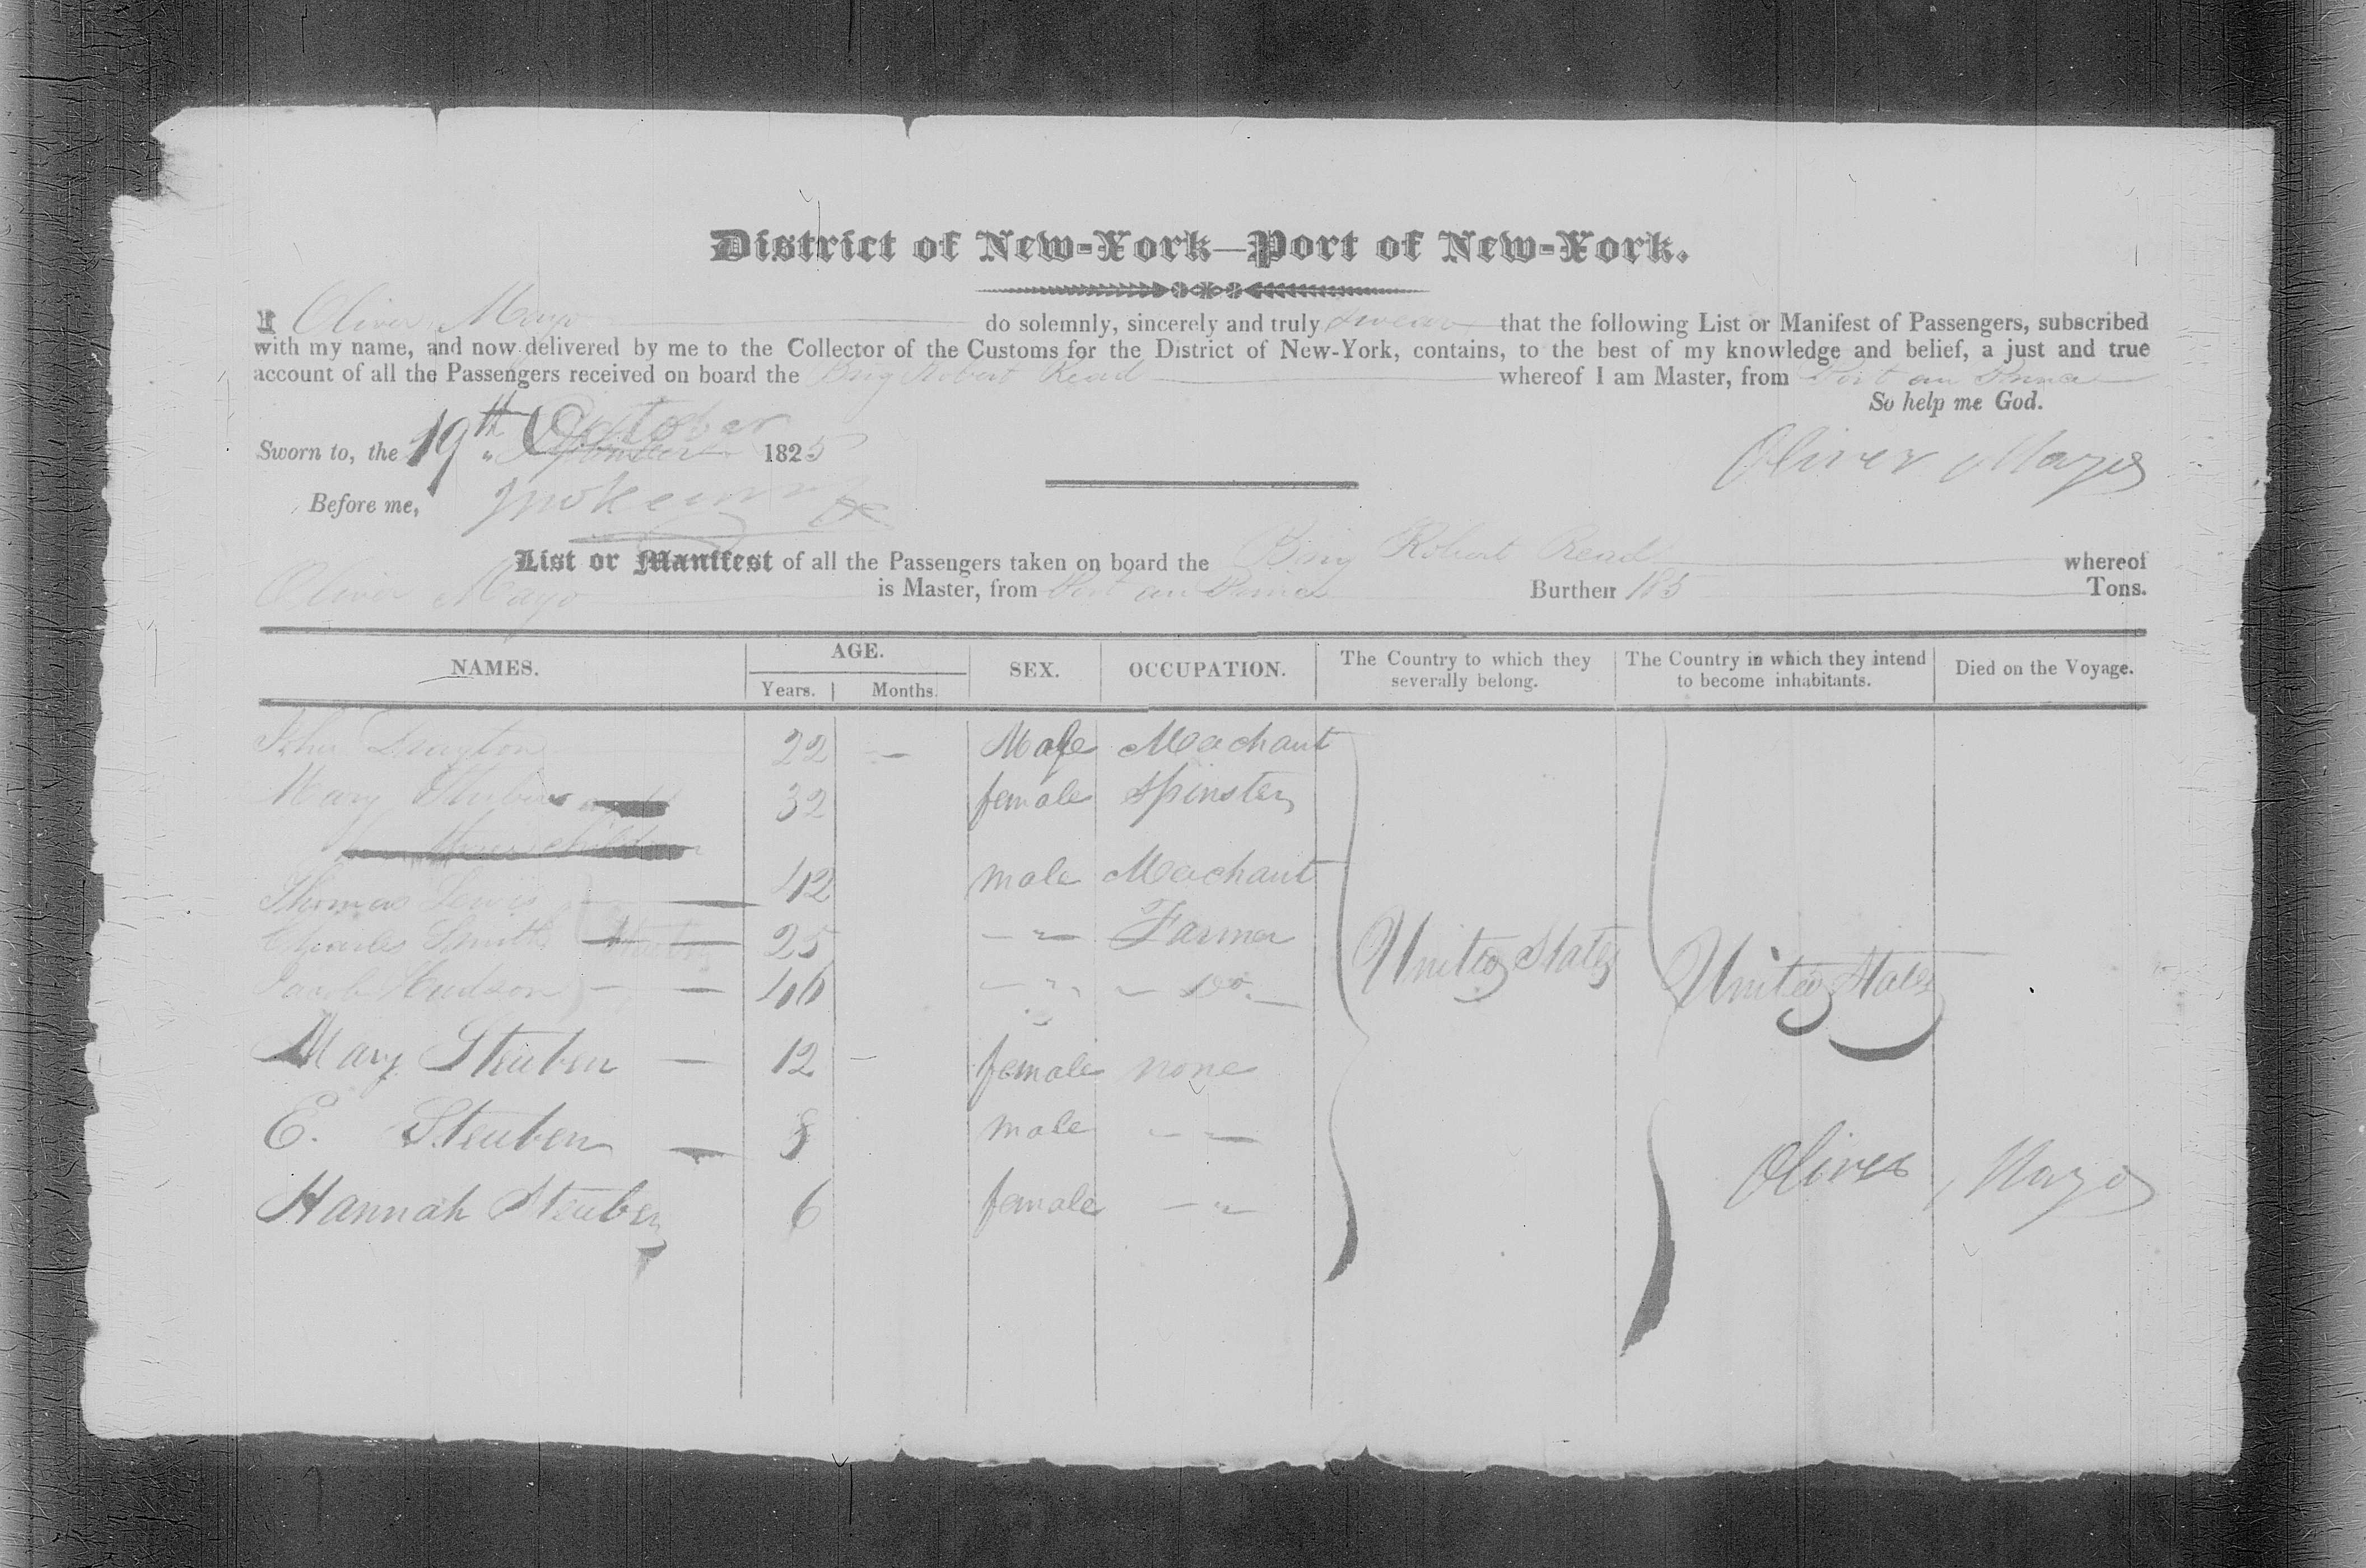 District of New-York—Port of New-York.
I Oliver Mayo do solemnly, sincerely and truly swear that the following List or Manifest of Passengers, subscribed
with my name, and now delivered by me to the Collector of the Customs for the District of New-York, contains, to the best of my knowledge and belief, a just and true
account of all the Passengers received on board the Brig Robert Read whereof I am Master, from Port au Prince
So help me God.
Sworn to, the 19th October 1825
Oliver Mayo
Before me,
List or Manifest of all the Passengers taken on board the Brig Robert Read whereof
Oliver Mayo is Master, from Port au Prince Burthen 185 Tons.
NAMES. AGE. SEX. OCCUPATION. The Country to which they severally belong. The Country in which they intend to become inhabitants. Died on the Voyage.
Years. Months.
John Drayton 22 — Male Merchant
Mary Steuben 32 female Spinster
her three children
Thomas Lewis 42 male Merchant
Charles Smith 25 — " — Farmer
Jacob Hudson 46 — " — Do.
United States United States
Mary Steuben — 12 — female none
E. Steuben — 8 male — —
Hannah Steuben 6 female — " —
Oliver Mayo